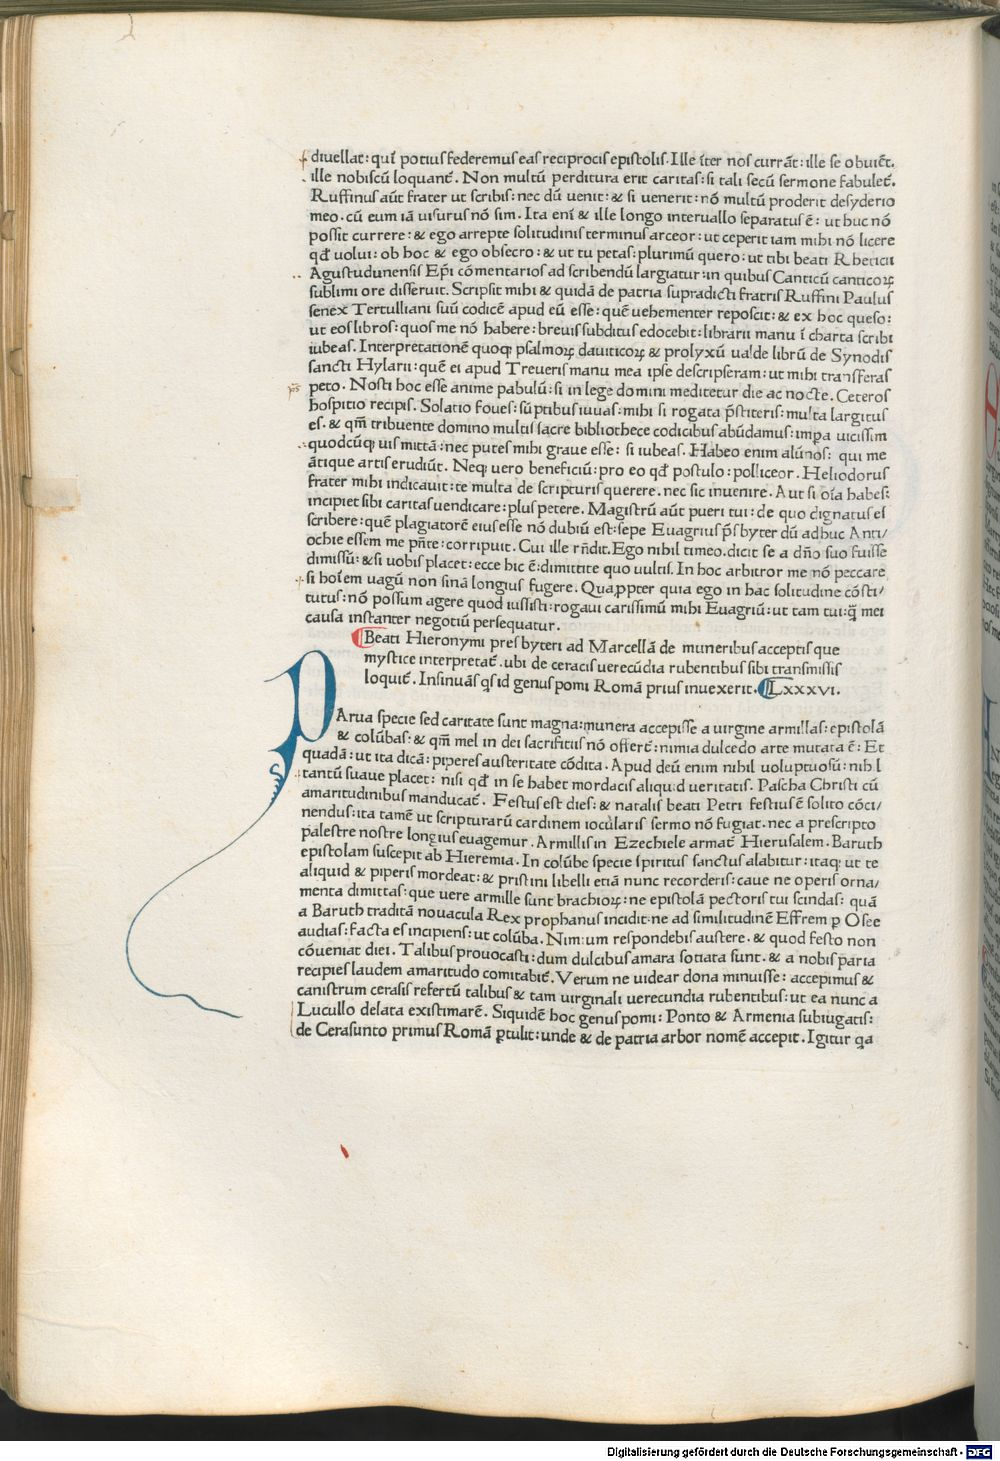 diuellat: quī potius federemus eas reciprocis epistolis. Ille īter nos currāt: ille se obuiēt.
ille nobiscū loquant̄. Non multū perditura erit caritas: si tali secū sermone fabulet̄.
Ruffinus aūt frater ut scribis: nec dū uenit: & si uenerit: nō multū proderit desyderio
meo. cū eum iā uisurus nō sim. Ita enī & ille longo interuallo separatus ē: ut huc nō
possit currere: & ego arrepte solitudinis terminus arceor: ut ceperit iam mihi nō licere
qd̄ uolui: ob hoc & ego obsecro: & ut tu petas: plurimū quero: ut tibi beati Rheticii
Agustudunensis Ep̄i cōmentarios ad scribendū largiatur: in quibus Canticū canticoꝝ
sublimi ore disseruit. Scripsit mihi & quidā de patria supradicti fratris Ruffini Paulus
senex Tertulliani suū codicē apud eū esse: quē uehementer reposcit: & ex hoc queso:
ut eos libros: quos me nō habere: breuis subditus edocebit: librarii manu ī charta scribi
iubeas. Interpretationē quoqꝫ psalmoꝝ dauiticoꝝ & prolyxū ualde librū de Synodis
sancti Hylarii: quē ei apud Treueris manu mea ipse descripseram: ut mihi transferas
peto. Nosti hoc esse anime pabulū: si in lege domini meditetur die ac nocte. Ceteros
hospitio recipis. Solatio foues: sūptibus iuuas: mihi si rogata p̄stiteris: multa largitus
es. & qm̄ tribuente domino multis sacre bibliothece codicibus abūdamus: impa uicissim
quodcūqꝫ uis mittā: nec putes mihi graue esse: si iubeas. Habeo enim alūnos: qui me
ātique artis erudiūt. Neqꝫ uero beneficiū: pro eo qd̄ postulo: polliceor. Heliodorus
frater mihi indicauit: te multa de scripturis querere. nec sic inuenire. Aut si oīa habes:
incipiet sibi caritas uendicare: plus petere. Magistrū aūt pueri tui: de quo dignatus es
scribere: quē plagiatorē eius esse nō dubiū est: sepe Euagrius p̄sbyter dū adhuc Anti/
ochie essem me pn̄te: corripuit. Cui ille rn̄dit. Ego nihil timeo. dicit se a dn̄o suo fuisse
dimissū: & si uobis placet: ecce hic ē: dimittite quo uultis. In hoc arbitror me nō peccare
si hoīem uagū non sinā longius fugere. Quaꝓpter quia ego in hac solitudine cōsti/
tutus: nō possum agere quod iussisti: rogaui carissimū mihi Euagriū: ut tam tui: q̄ꝫ mei
causa instanter negotiū persequatur.
Beati Hieronymi presbyteri ad Marcellā de muneribus acceptis que
mystice interpretat̄. ubi de ceracis uerecūdia rubentibus sibi transmissis
loquit̄. Insinuās qꝫ id genus pomi Romā prius inuexerit. LXXXVI.
PArua specie sed caritate sunt magna: munera accepisse a uirgine armillas: epistolā
& colūbas: & qm̄ mel in dei sacrificiis nō offert̄: nimia dulcedo arte mutata ē: Et
quadā: ut ita dicā: piperes austeritate cōdita. Apud deū enim nihil uoluptuosū: nihl
tantū suaue placet: nisi qd̄ in se habet mordacis aliquid ueritatis. Pascha Christi cū
amaritudinibus manducat̄. Festus est dies: & natalis beati Petri festius ē solito cōci/
nendus: ita tamē ut scripturarū cardinem iocularis sermo nō fugiat. nec a prescripto
palestre nostre longius euagemur. Armillis in Ezechiele armat̄ Hierusalem. Baruth
epistolam suscepit ab Hieremia. In colūbe specie spiritus sanctus alabitur: itaqꝫ ut te
aliquid & piperis mordeat: & pristini libelli etiā nunc recorderis: caue ne operis orna/
menta dimittas: que uere armille sunt brachioꝝ: ne epistolā pectoris tui scindas: quā
a Baruth traditā nouacula Rex prophanus incidit: ne ad similitudinē Effrem ꝑ Osee
audias: facta es incipiens: ut colūba. Nimium respondebis austere. & quod festo non
cōueniat diei. Talibus prouocasti: dum dulcibus amara sotiata sunt. & a nobis paria
recipies laudem amaritudo comitabit̄. Verum ne uidear dona minuisse: accepimus &
canistrum cerasis refertū talibus & tam uirginali uerecundia rubentibus: ut ea nunc a
Lucullo delata existimarē. Siquidē hoc genus pomi: Ponto & Armenia subiugatis:
de Cerasunto primus Romā ꝑtulit: unde & de patria arbor nomē accepit. Igitur qa
Digitalisierung gefördert durch die Deutsche Forschungsgemeinschaft - DFG